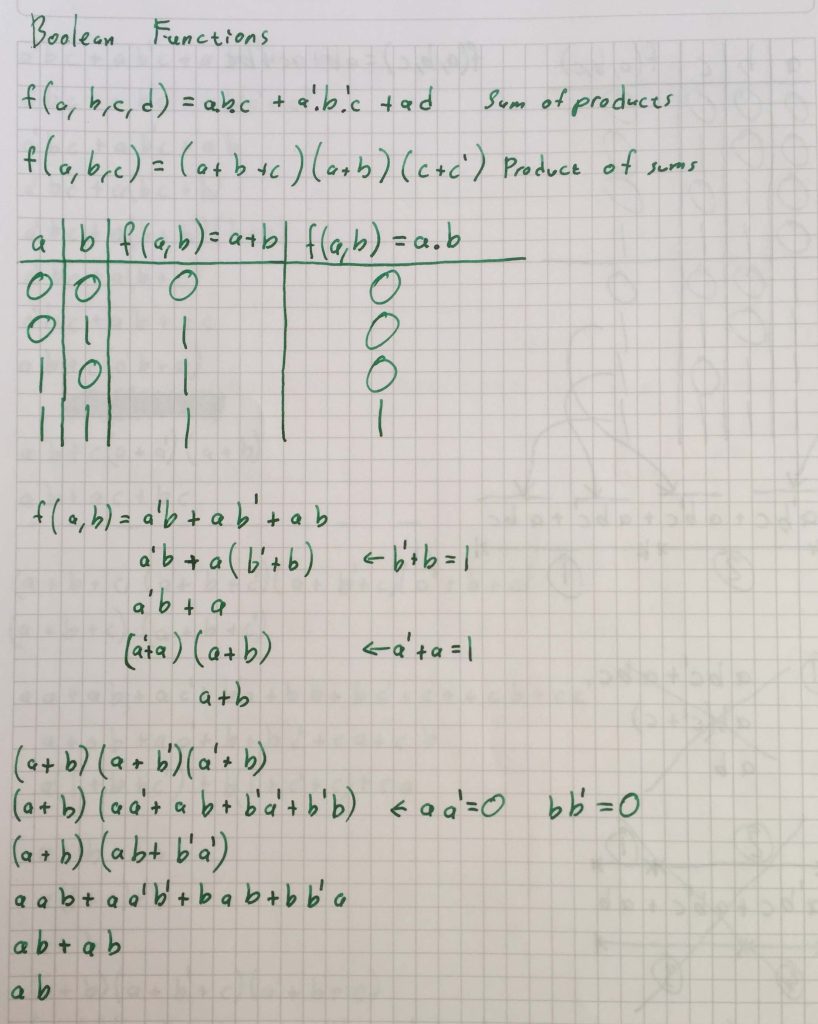 Boolean Functions
f(a, b, c, d) = a.b.c + a'.b.'c + ad Sum of products
f(a, b, c) = (a + b + c)(a + b)(c + c') Product of sums
a | b | f(a, b) = a + b | f(a, b) = a . b
0 0 0 0
0 1 1 0
1 0 1 0
1 1 1 1
f(a, b) = a'b + a b' + a b
a'b + a(b' + b) ← b' + b = 1
a'b + a
(a' + a)(a + b) ← a' + a = 1
a + b
(a + b)(a + b')(a' + b)
(a + b)(aa' + a b + b'a' + b'b) ← a a' = 0 b b' = 0
(a + b)(ab + b'a')
a a b + a a'b' + b a b + b b' a
a b + a b
a b